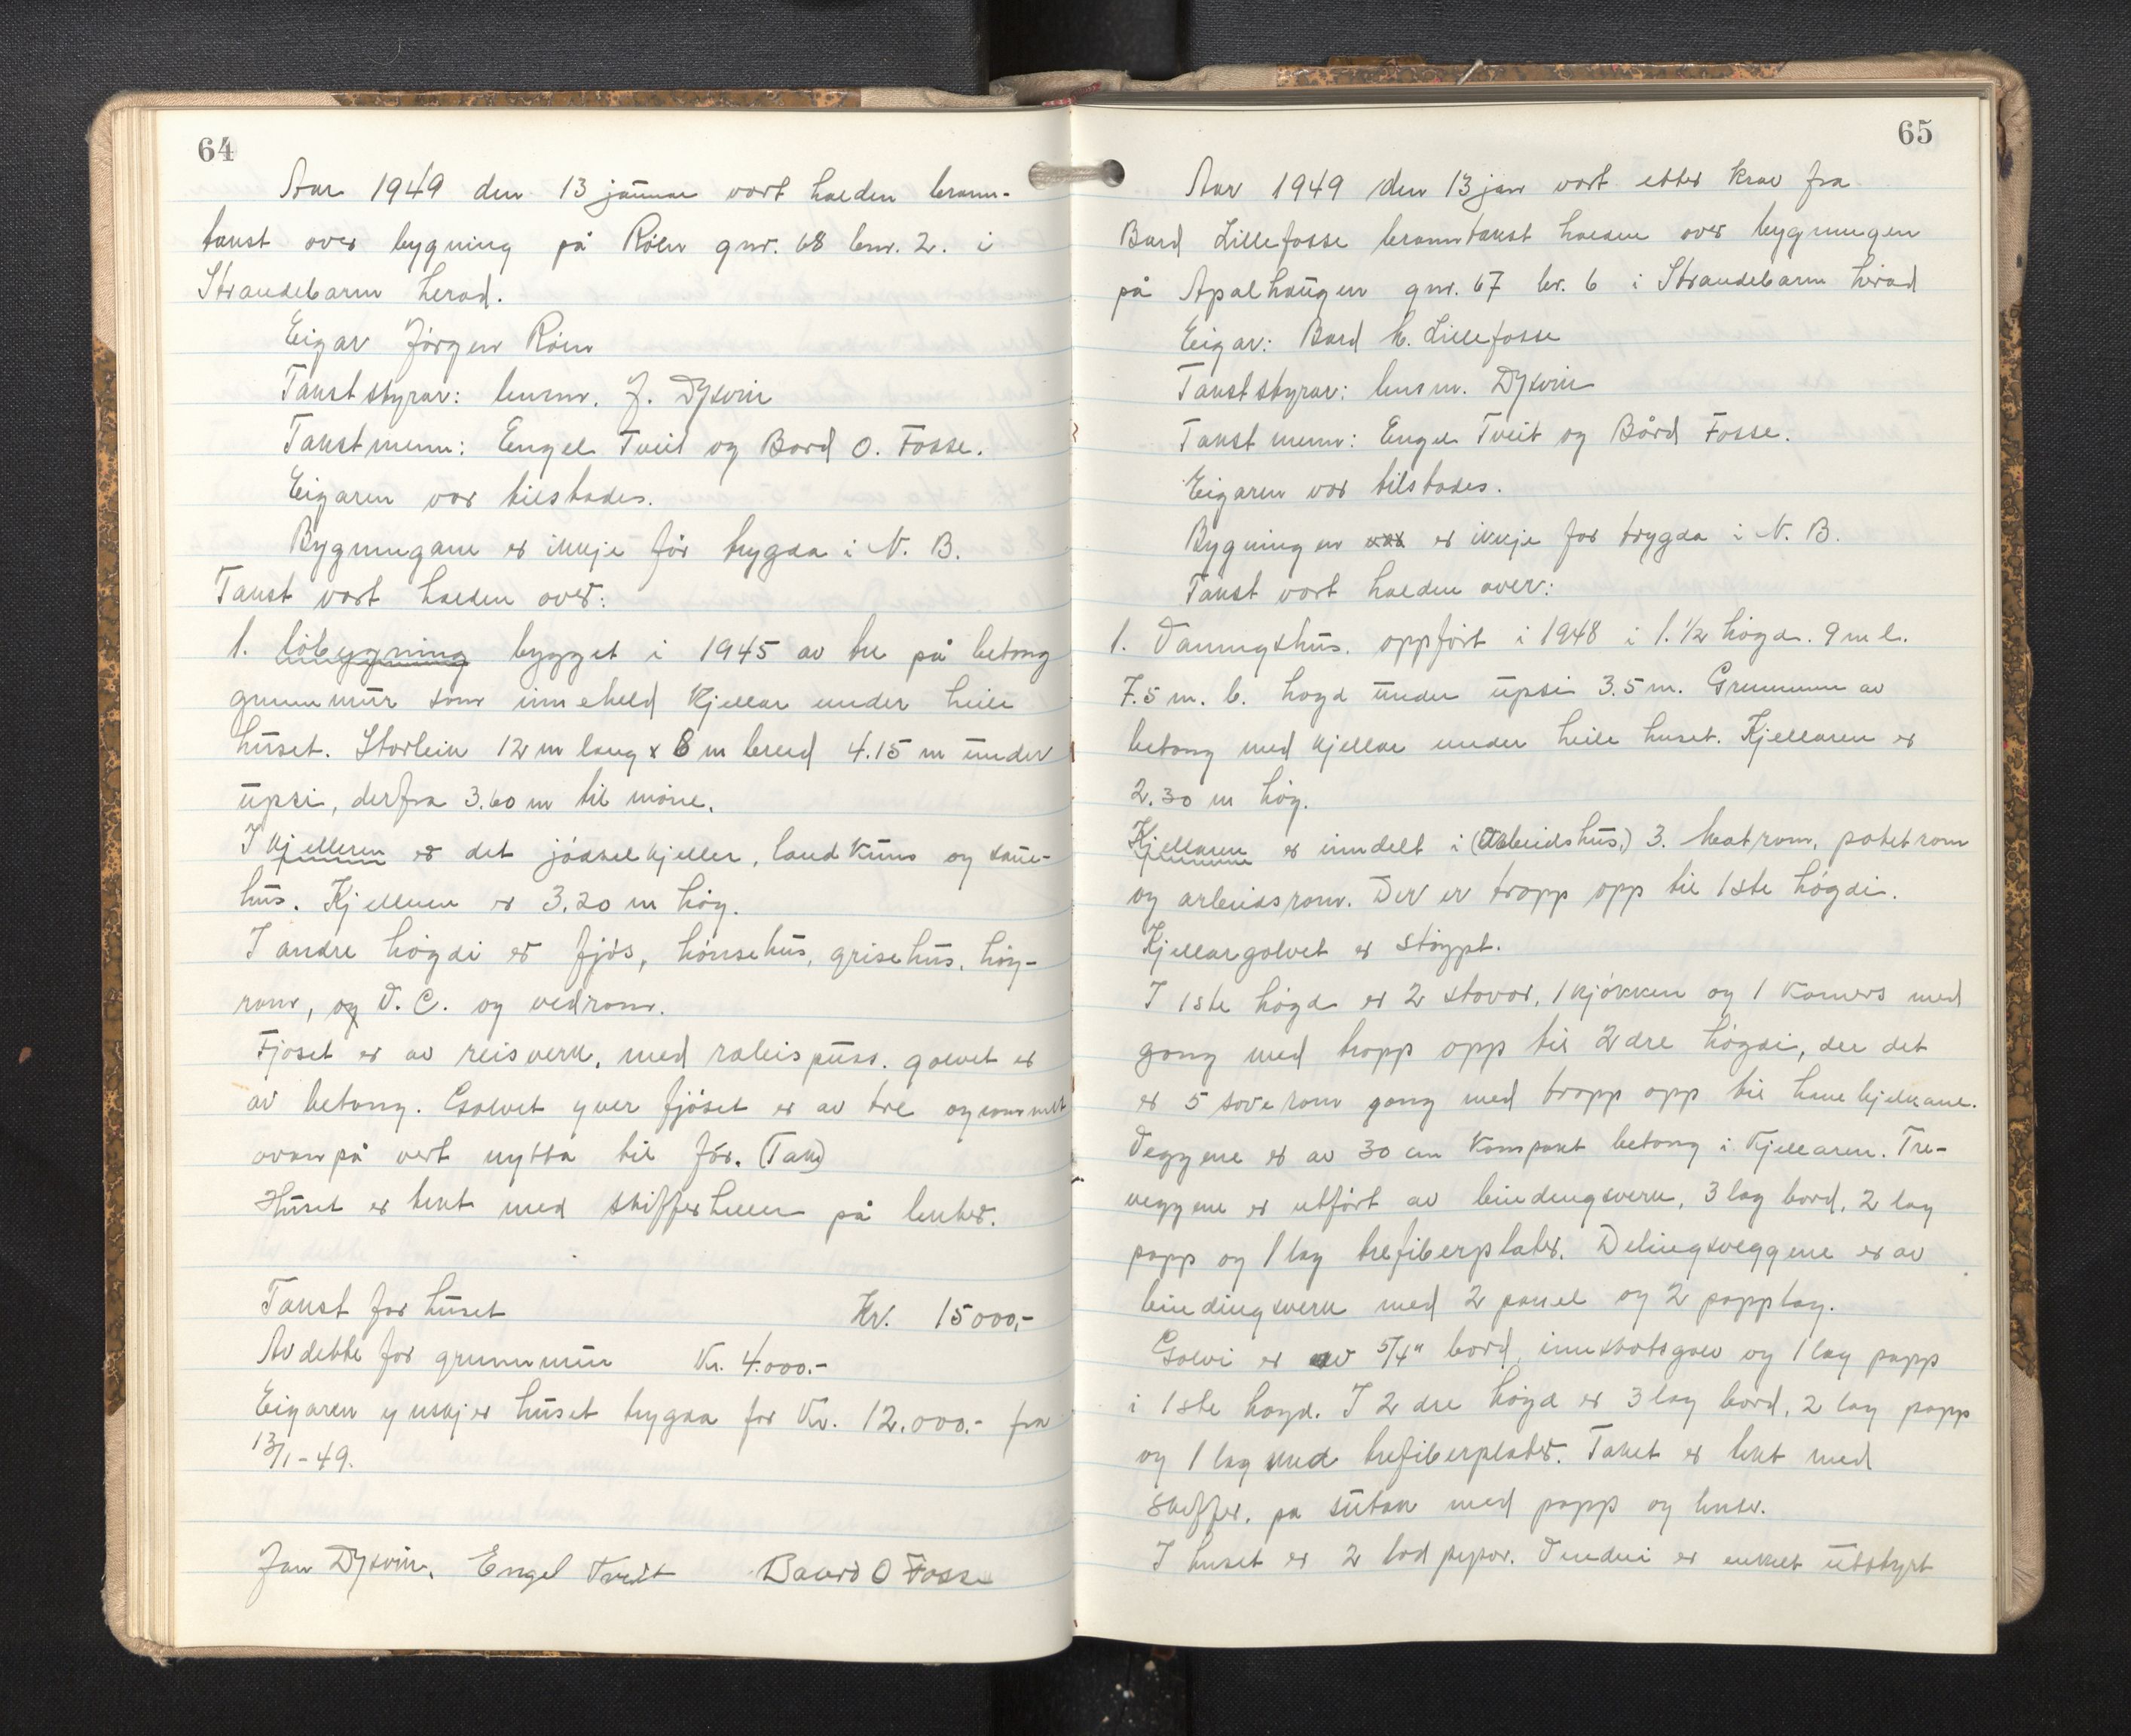 64
Aar 1949 den 13 januar vart halden brann-
takst over bygning på Röen gnr. 68 bnr. 2. i
Strandebarm herad.
Eigar Jörgen Röen
Takststyrar: lensm. J. Dysvin
Takstmenn: Engel Tveit og Bård O. Fosse.
Eigaren var tilstades.
Bygningane er ikkje för trygda i N. B.
Takst vart halden over:
1. löbygning bygget i 1945 av tre på betong
grunnmur som inneheld kjellar under heile
huset. Storleik 12 m lang x 8 m breid 4.15 m under
upsi, derfra 3.60 m til möne.
I kjelleren er det jödselkjeller, land kum og saue-
hus. Kjelleren er 3.20 m høg.
I andre högdi er fjös, hönsehus, grisehus, höy-
rom, og V. C. og vedrom.
Fjoset er av reisverk, med rabispuss. golvet er
av betong. Golvet yver fjöset er av tre og rommet
ovanpå vert nytta til fór. (Tak)
Huset er tekt med skifferheller på lekter.
Takst for huset Kr. 15000,-
Av dette for grunnmur Kr. 4.000.-
Eigaren ynskjer huset trygda for Kr. 12.000.- fra
13/1-49.
Jan Dysvin. Engel Tveit Baard O Fosse
65
Aar 1949 den 13 jan vart etter krav fra
Bard Lillefosse branntakst halden over bygningen
på Apalhaugen gnr. 67 br. 6 i Strandebarm herad
Eigar: Bard H. Lillefosse
Takststyrar: lensm. Dysvin
Takstmenn: Engel Tveit og Bård Fosse.
Eigaren var tilstades.
Bygningen var er ikkje for trygda i N. B.
Takst vart halden over:
1. Vaningshus. oppfört i 1948 i 1.1/2 högd. 9 m l.
7.5 m. b. hogd under upsi 3.5 m. Grunnmur av
betong med kjellar under heile huset. Kjellaren er
2.30 m høg.
Kjellaren er inndelt i (Arbeidshus,) 3. matrom, potetrom
og arbeidsrom. Der er tropp opp til 1ste högdi.
Kjellargolvet er stöypt.
I 1ste högd er 2 stovor, 1 kjökken og 1 kamers med
gang med tropp opp til 2dre högdi, der det
er 5 soverom gang med tropp opp til hanebjelkane.
Veggene er av 30 cm kompakt betong i kjellaren. Tre-
veggene er utfört av bindingsverk, 3 lag bord, 2 lag
papp og 1 lag trefiberplater. Delingsveggene er av
bindingsverk med 2 panel og 2 papplag.
Golvi er av 5/4" bord, innskotsgolv og 1 lag papp
i 1ste hogd. I 2dre högd er 3 lag bord, 2 lag papp
og 1 lag med trefiberplater. Taket er tekt med
skiffer, pa sutak med papp og lekter.
I huset er 2 lod pipor. Vindui er enkelt utstyrt